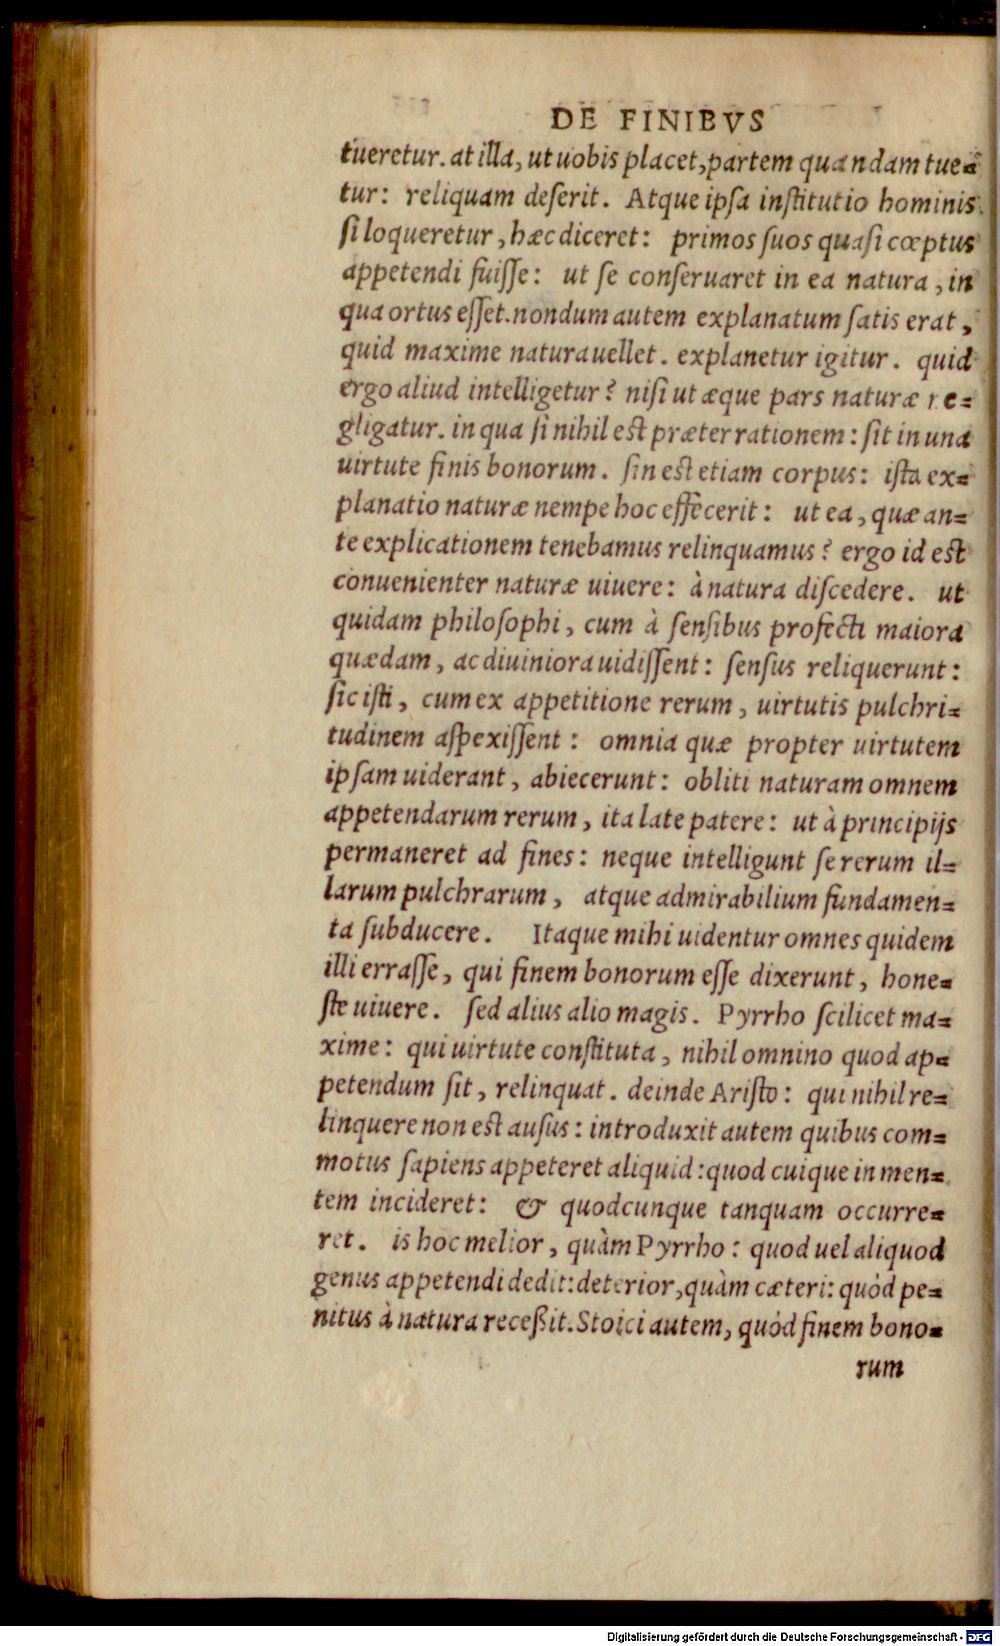 DE FINIBVS
tueretur. at illa, ut uobis placet, partem quandam tue=
tur: reliquam deſerit. Atque ipſa inſtitutio hominis
ſi loqueretur, hæc diceret: primos ſuos quaſi cœptus
appetendi fuiſſe: ut ſe conſeruaret in ea natura, in
qua ortus eſſet. nondum autem explanatum ſatis erat,
quid maxime natura uellet. explanetur igitur. quid
ergo aliud intelligetur? niſi ut æque pars naturæ re=
gligatur. in qua ſi nihil est præter rationem: ſit in una
uirtute finis bonorum. ſin est etiam corpus: iſta ex=
planatio naturæ nempe hoc effecerit: ut ea, quæ an=
te explicationem tenebamus relinquamus? ergo id est
conuenienter naturæ uiuere: à natura diſcedere. ut
quidam philoſophi, cum à ſenſibus profecti maiora
quædam, ac diuiniora uidiſſent: ſenſus reliquerunt:
ſic iſti, cum ex appetitione rerum, uirtutis pulchri=
tudinem aſpexiſſent: omnia quæ propter uirtutem
ipſam uiderant, abiecerunt: obliti naturam omnem
appetendarum rerum, ita late patere: ut à principijs
permaneret ad fines: neque intelligunt ſe rerum il=
larum pulchrarum, atque admirabilium fundamen=
ta ſubducere. Itaque mihi uidentur omnes quidem
illi erraſſe, qui finem bonorum eſſe dixerunt, hone=
ſte uiuere. ſed alius alio magis. Pyrrho ſcilicet ma=
xime: qui uirtute conſtituta, nihil omnino quod ap=
petendum ſit, relinquat. deinde Ariſto: qui nihil re=
linquere non est auſus: introduxit autem quibus com=
motus ſapiens appeteret aliquid: quod cuique in men=
tem incideret: & quodcunque tanquam occurre=
ret. is hoc melior, quàm Pyrrho: quod uel aliquod
genus appetendi dedit: deterior, quàm cæteri: quòd pe=
nitus à natura receßit. Stoici autem, quòd finem bono=
rum
Digitalisierung gefördert durch die Deutsche Forschungsgemeinschaft - DFG